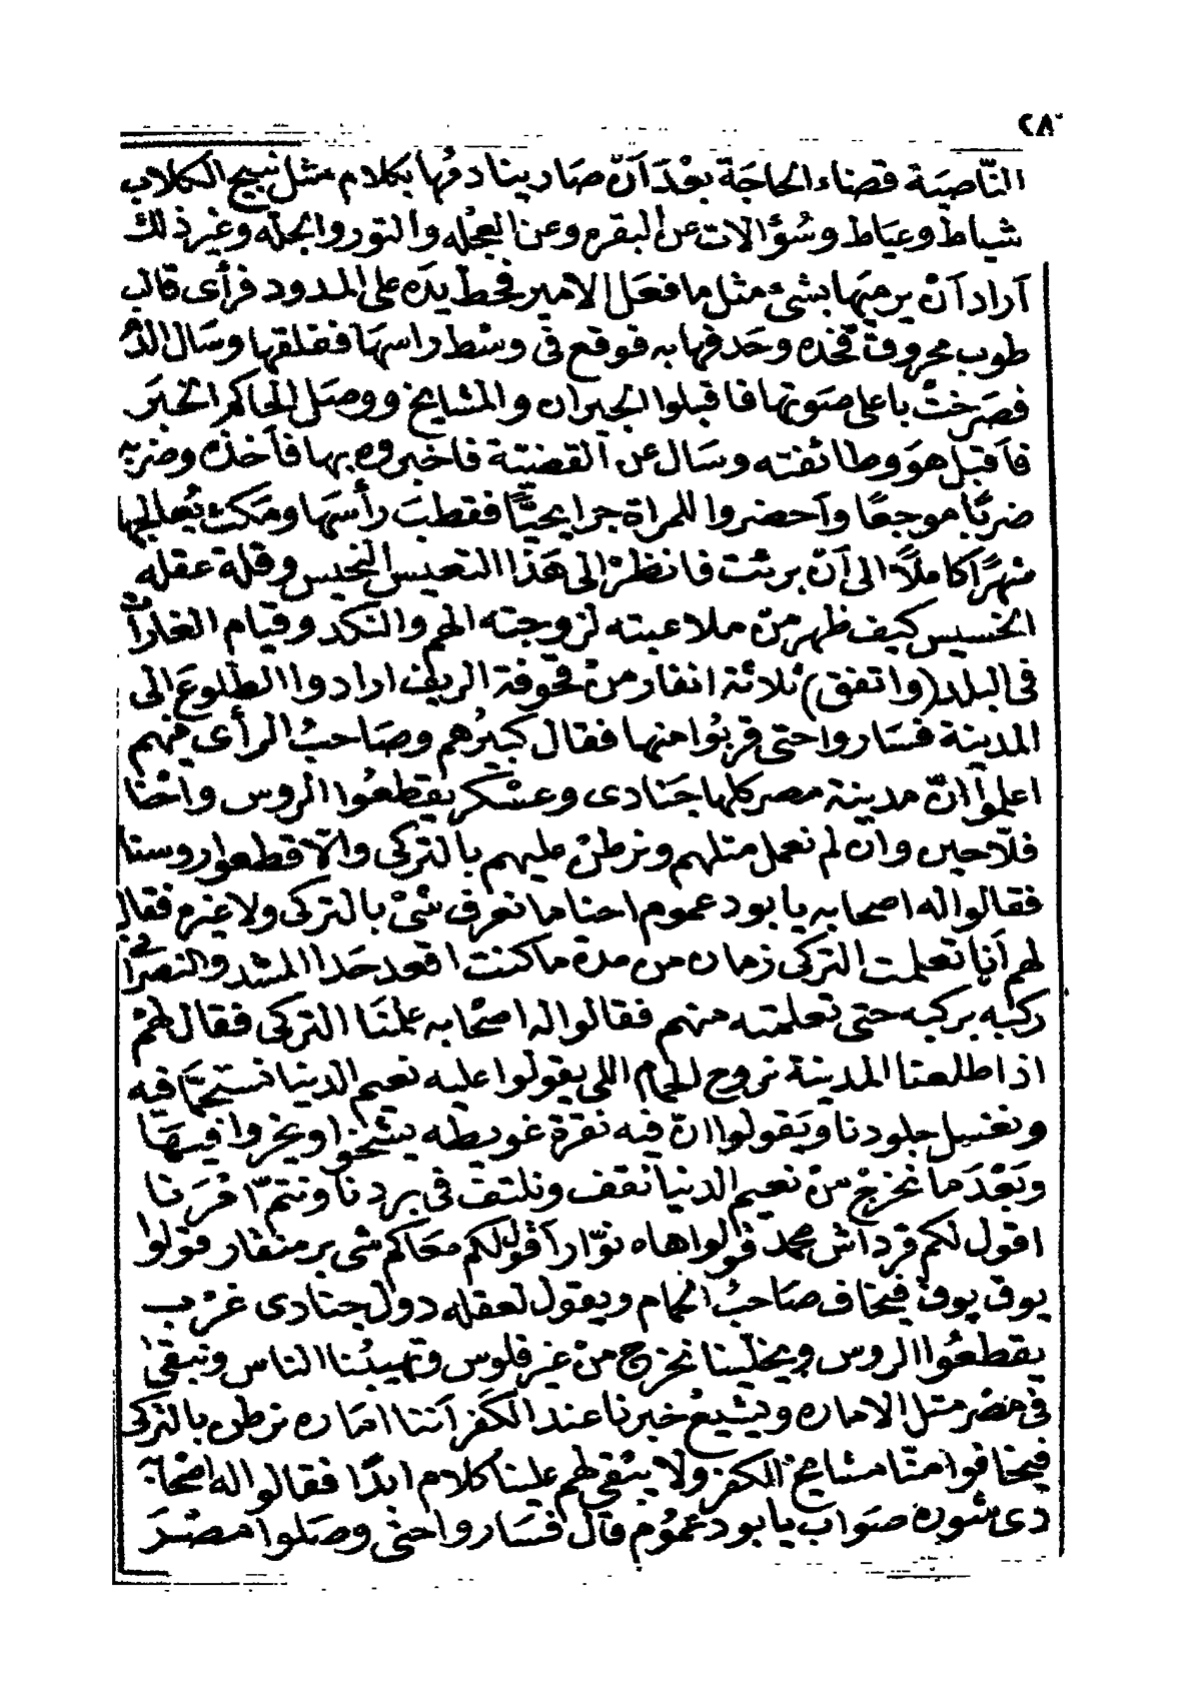 ٢٨
النّاصية قضاء الحاجَة بعْدَ آنّ صَار بينا دفُها بكلام مثل نبيح الكلاب
شياط وعياط وسُؤالات عن البقره وعن العجْله والتور والجله وغيْر ذلك
آراد آنْ يرميَها بشئ مثل ما فعَل الامير فحط يدَه على المدود فرأى قالب
طوب محروق فخذه وحَدفها به فوقع فى وسْط راسهَا ففلقها وسَال الدّم
فصَرختْ باعلى صَوتها فاقبلوا الجيران والمشايخ ووصَل الحاكم الخبَر
فآقبل هوَ وطائفته وسَال عن القضيّة فاخبروه بها فآخذه وضربه
ضربًا موجعًا وآحضروا للمراة جرايحيًّا فقطبَ رأسَها ومَكث يُعالجها
شهرًا كاملاً الى آنْ برئت فانظرْ الى هَذا التعيس النحيس وقلة عقله
الخسيس كيف ظهر منْ ملاعبته لزوجته الهم والنكد وقيام الغارات
فى البلد (واتفق) ثلاثة انفار منْ قحوفة الريف ارادوا الطلوعَ الى
المدينة فسَاروا حتى قربُوا منها فقال كبيرُهم وصَاحبُ الرأى منهم
اعلموا انّ مدينة مصر كلها جَنادى وعسْكر يقطعُوا الروس واحْنا
فلّاحين وان لم نعمل متلهم ونرطنْ عليهم بالتركى والّا قطعوا روسنا
فقالوا له اصحابه يا بو دعموم احنا ما نعرف شىْ بالتركى ولا غيره فقال
لهم آنا تعلمت التركى زمان من مدة ما كنت اقعد حَدا المشد والنصرَانى
ركبه بركبه حتى تعلمته منهم فقالوا له اصْحابه علمنَا التركى فقال لهمْ
اذا طلعنا المدينة نروح الحمام اللى يقولوا عليه نعيم الدنيا نستحمَّا فيه
ونغسل جلودنا ويَقولوا انّ فيه نقرَة غويطه يشخوا ويخروا فيهَا
وبَعْدَ ما نخرجْ منْ نعيم الدنيا نقف ونلتف فى بردنا ونتمّا
اقول لكم قرداش محمد قولوا هاه نوّار آقول لكم معَاكم شى بر منقار قولوا
يوق يوق فيخاف صَاحبُ الحمام ويقول لعقله دول جنادى غرْب
يقطعُوا الروس ويخلّينا نخرجْ منْ غير فلوس وتهيبُنا الناس ونبقى
فى مصْر متل الاماره ويشيعُ خبرنا عند الكَفر آننا امَاره نرطن بالتركى
فيخافوا منّا مشايخ الكفر ولا يبْقى لهم علينا كلام ابدًا فقالوا له اصْحابه
دى شوره صَواب يا بو دعمُوم قال فسَاروا حتى وصَلوا مصْرَ